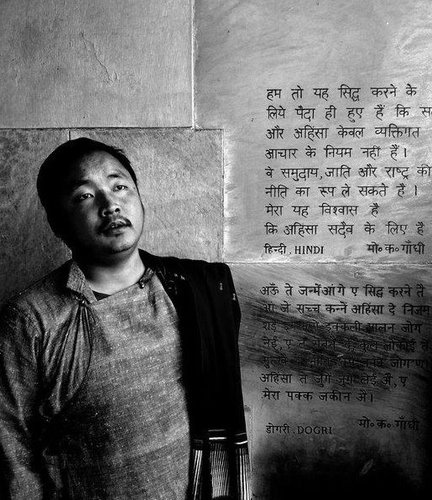 हम तो यह सिद्ध करने के
लिये पैदा ही हुए हैं कि स
और अहिंसा केवल व्यक्तिगत
आचार के नियम नहीं हैं।
वे समुदाय, जाति और राष्ट्र की
नीति का रूप ले सकते हैं।
मेरा यह विश्वास है
कि अहिंसा सदैव के लिए है
हिन्दी . HINDI मो॰क॰गाँधी
अऊँ ते जन्मेआं गे ए सिद्ध करने तै
जे सच्च कन्नें अहिंसा दे निजम
जोग
अहिंसा ते जुगें जुगें लेई ऐ, ए
मेरा पक्क जकीन ऐ।
डोगरी . DOGRI मो॰क॰गाँधी